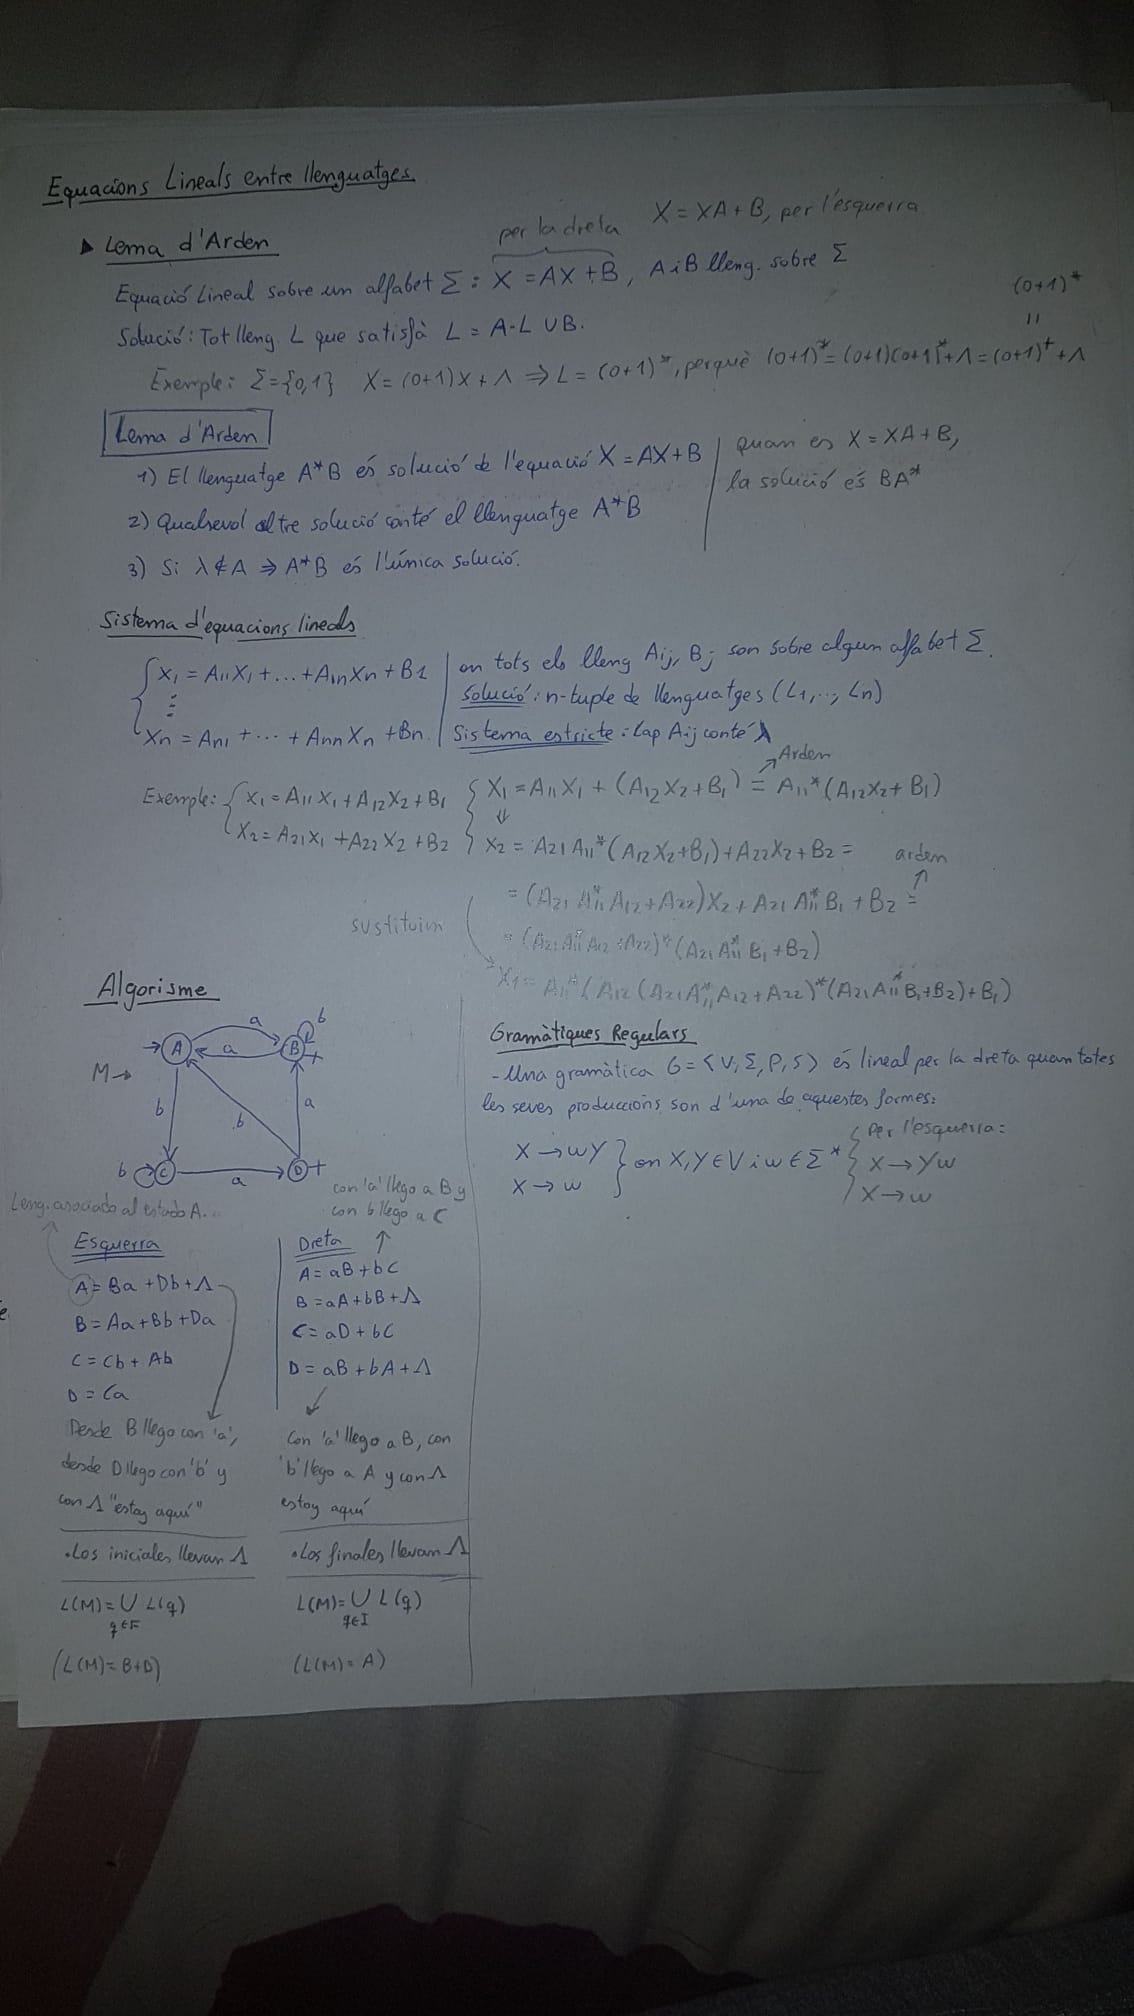 Equacions Lineals entre llenguatges
▸ Lema d'Arden
per la dreta X = XA + B, per l'esquerra
Equació Lineal sobre un alfabet Σ : X = AX + B, A i B lleng. sobre Σ
Solució: Tot lleng. L que satisfà L = A·L ∪ B.
(0+1)*
=
Exemple: Σ={0,1} X = (0+1)X + Λ ⇒ L = (0+1)*, perquè (0+1)* = (0+1)(0+1)* + Λ = (0+1)⁺ + Λ
Lema d'Arden
1) El llenguatge A*B és solució de l'equació X = AX + B
2) Qualsevol altre solució conté el llenguatge A*B
3) Si λ ∉ A ⇒ A*B és l'única solució.
quan es X = XA + B,
la solució és BA*
Sistema d'equacions lineals
X₁ = A₁₁X₁ + ... + A₁nXn + B1
⋮
Xn = An₁ + ... + AnnXn + Bn.
on tots els lleng Aij, Bj son sobre algun alfabet Σ.
Solució: n-tuple de llenguatges (L1,..., Ln)
Sistema estricte: Cap Aij conté λ
Exemple: { X₁ = A₁₁X₁ + A₁₂X₂ + B₁
X₂ = A₂₁X₁ + A₂₂X₂ + B₂
Arden
X₁ = A₁₁X₁ + (A₁₂X₂ + B₁) = A₁₁*(A₁₂X₂ + B₁)
⇓
X₂ = A₂₁A₁₁*(A₁₂X₂+B₁) + A₂₂X₂ + B₂ =
arden
= (A₂₁A₁₁*A₁₂ + A₂₂)X₂ + A₂₁A₁₁*B₁ + B₂ =
= (A₂₁A₁₁*A₁₂ + A₂₂)*(A₂₁A₁₁*B₁ + B₂)
sustituim
X₁ = A₁₁*(A₁₂(A₂₁A₁₁*A₁₂ + A₂₂)*(A₂₁A₁₁*B₁+B₂)+B₁)
Algorisme
M→
A
a
a
B
b
+
b
b
a
b
C
a
D
+
Leng. asociado al estado A...
con 'a' llego a B y
con b llego a C
Esquerra
A = Ba + Db + Λ
B = Aa + Bb + Da
C = Cb + Ab
D = Ca
Desde B llego con 'a',
desde D llego con 'b' y
con Λ "estoy aquí"
·Los iniciales llevan Λ
L(M) = ∪ L(q)
q∈F
(L(M) = B+D)
Dreta
A = aB + bC
B = aA + bB + Λ
C = aD + bC
D = aB + bA + Λ
Con 'a' llego a B, con
'b' llego a A y con Λ
estoy aquí
·Los finales llevan Λ
L(M) = ∪ L(q)
q∈I
(L(M) = A)
Gramàtiques Regulars
- Una gramàtica G = ⟨V, Σ, P, S⟩ és lineal per la dreta quan totes
les seves produccions son d'una de aquestes formes:
X → wY
X → w
on X, Y ∈ V i w ∈ Σ*
Per l'esquerra:
X → Yw
X → w